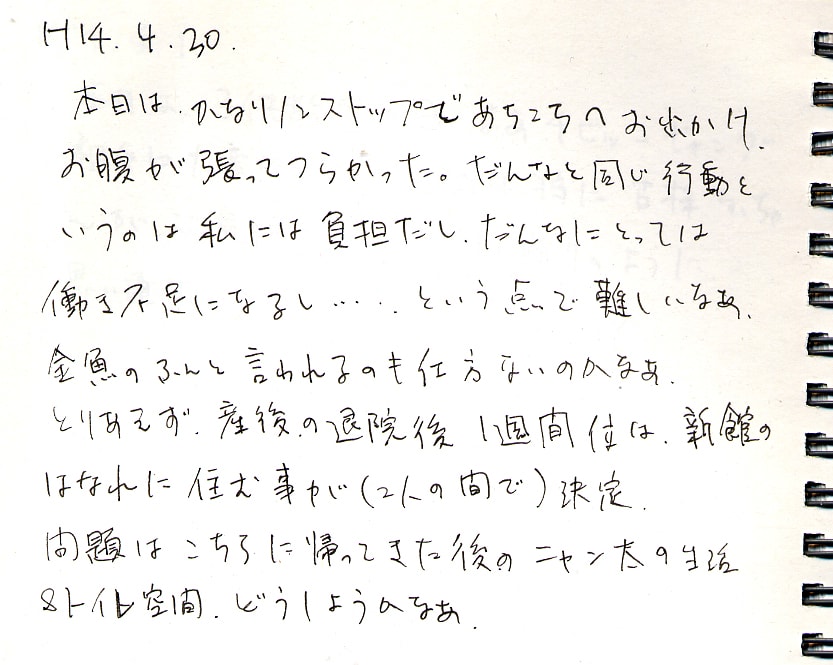 H14.4.30.
本日は、かなりノンストップであちこちへお出かけ、
お腹が張ってつらかった。だんなと同じ行動と
いうのは私には負担だし、だんなにとっては
働き不足になるし・・・・・という点で難しいなあ、
金魚のふんと言われるのも仕方ないのかなあ、
とりあえず、産後の退院後1週間位は、新館の
はなれに住む事が(2人の間で)決定、
問題はこちらに帰ってきた後のニャン太の生活
&トイレ空間、どうしようかなあ、